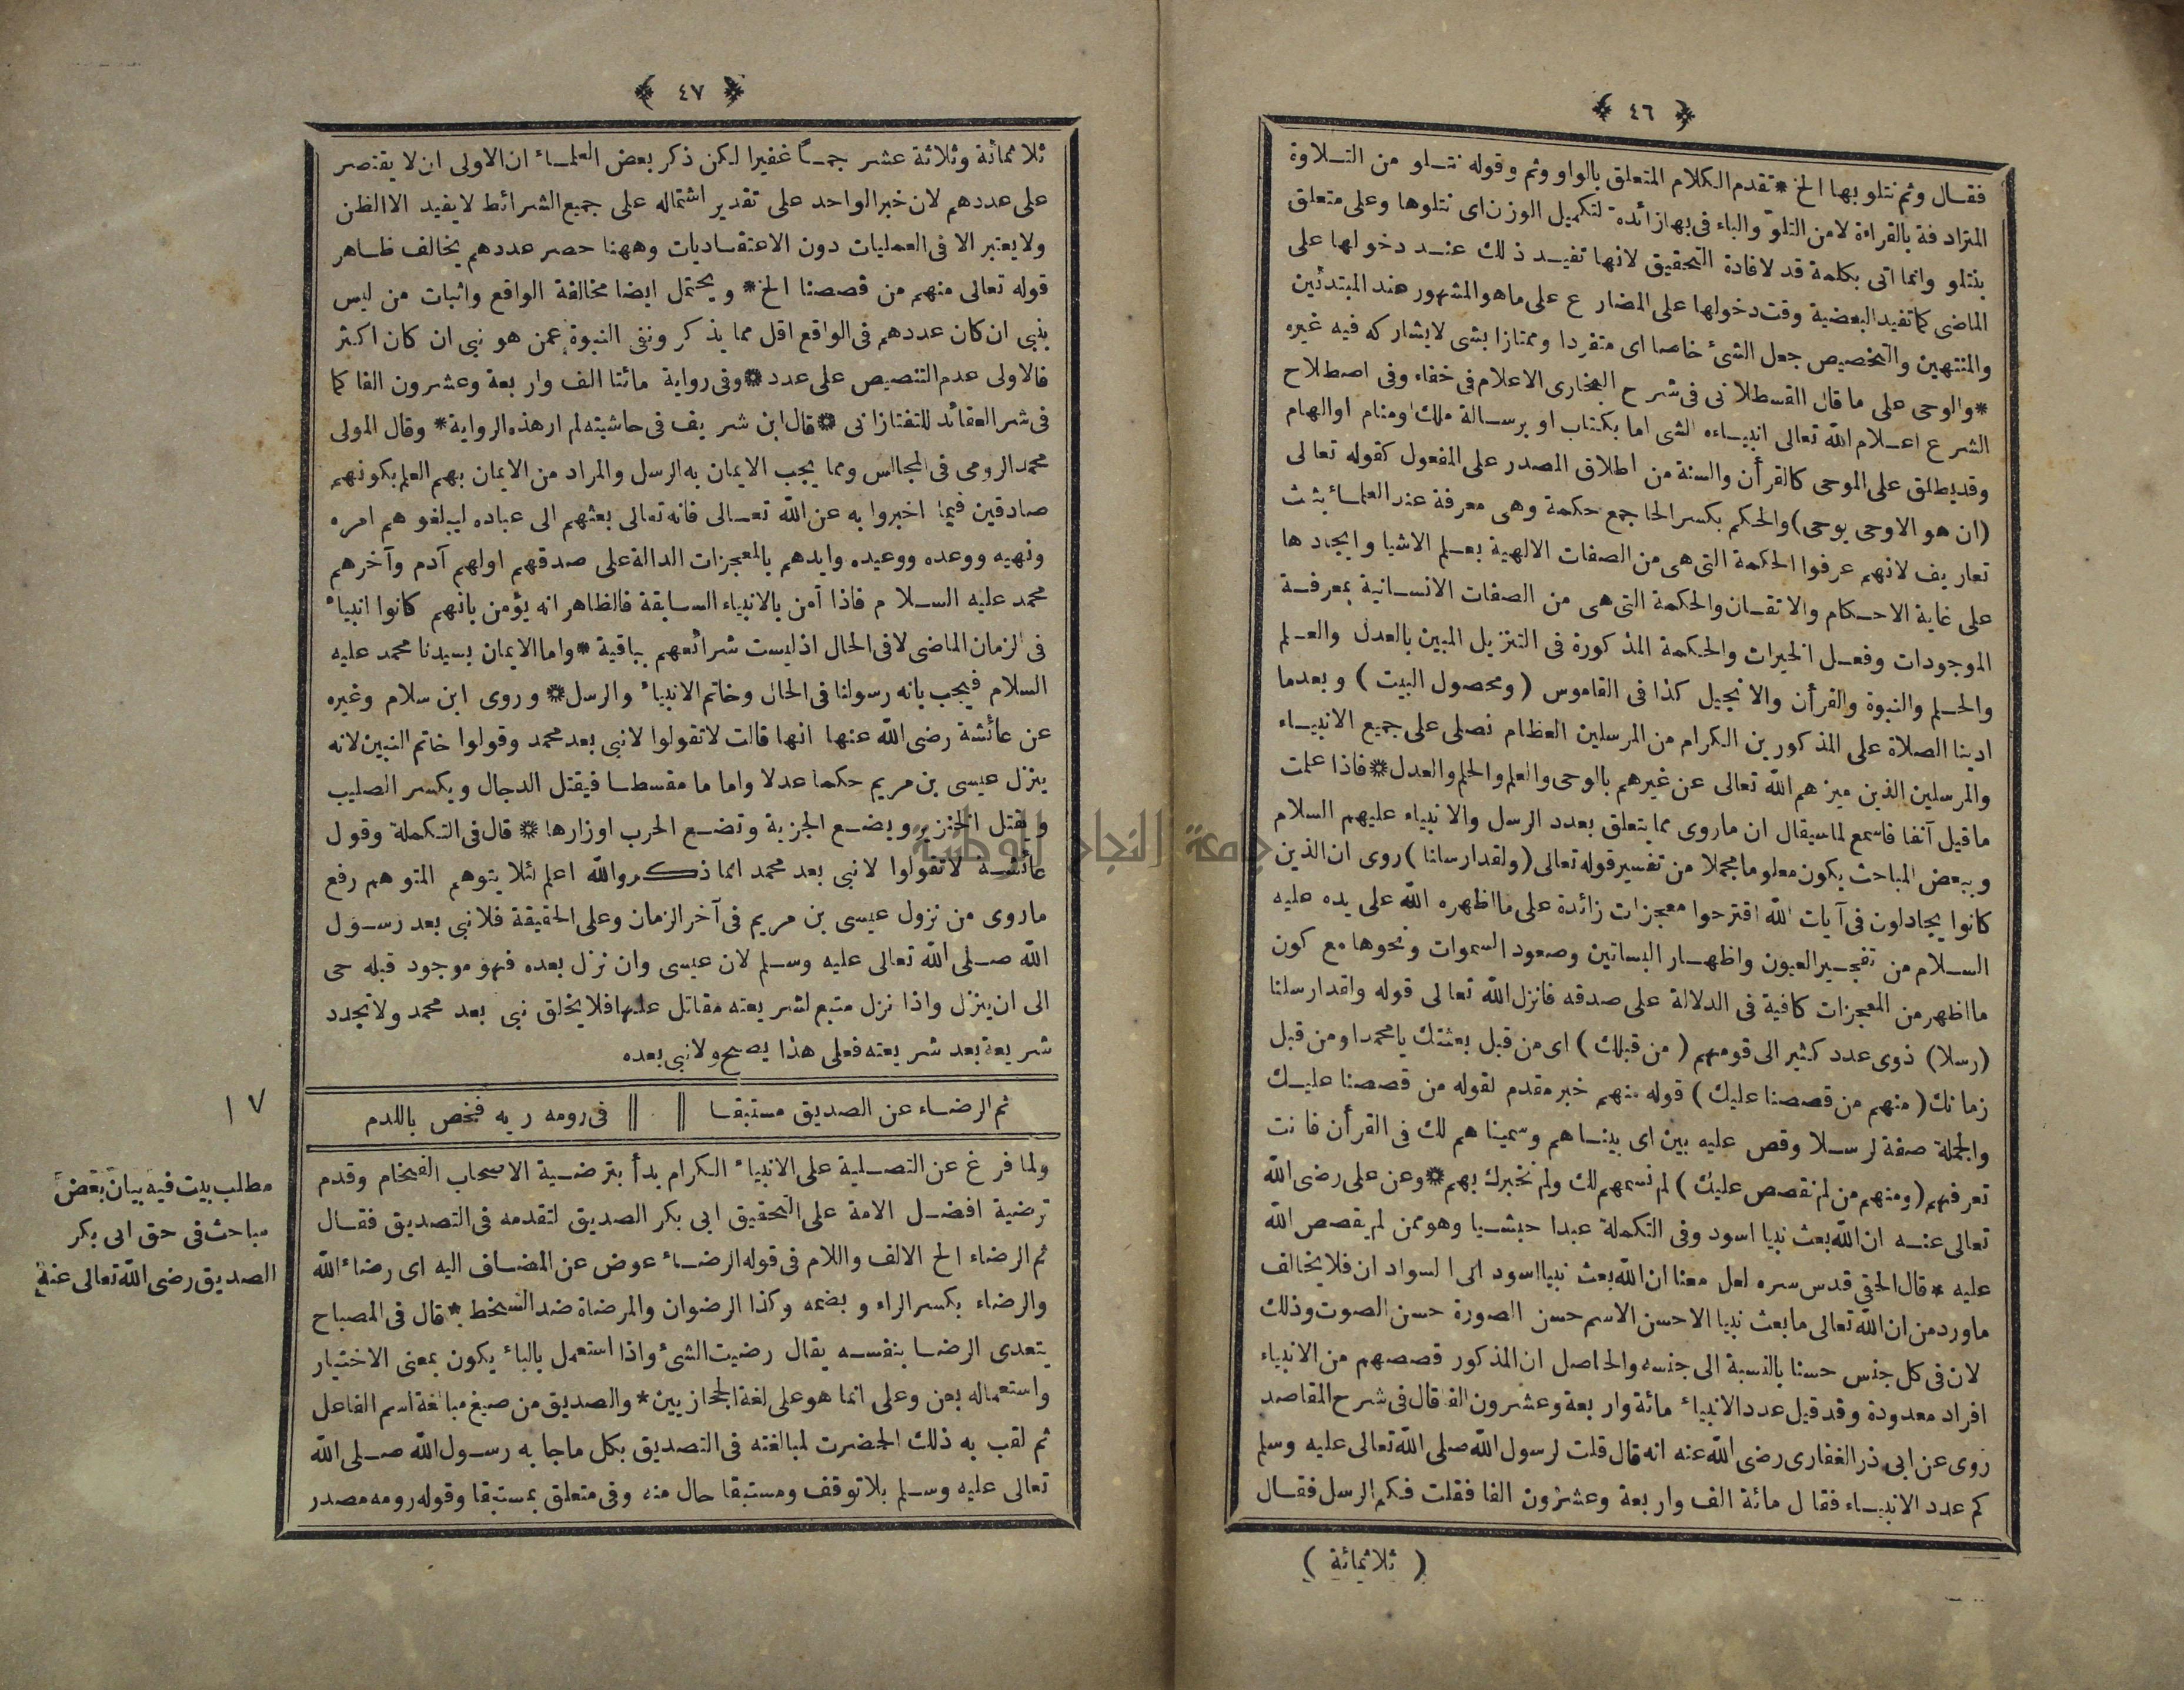 ﴿ ٤٦ ﴾
فقال وثم نتلو بها الخ * تقدم الكلام المتعلق بالواو وثم وقوله نتلو من التلاوة
المترادفة بالقراءة لا من التلوّ والباء فى بها زائدة لتكميل الوزن اى نتلوها وعلى متعلق
بنتلو وانما اتى بكلمة قد لافادة التحقيق لانها تفيد ذلك عند دخولها على
الماضى كما تفيد البعضية وقت دخولها على المضارع على ما هو المشهور عند المبتدئين
والمنتهين والتخصيص جعل الشئ خاصا اى متفردا وممتازا بشى لا يشاركه فيه غيره
* والوحى على ما قال القسطلانى فى شرح البخارى الاعلام فى خفاء وفى اصطلاح
الشرع اعلام الله تعالى انبياءه الشى اما بكتاب او برسالة ملك او منام او الهام
وقد يطلق على الموحى كالقرأن والسنة من اطلاق المصدر على المفعول كقوله تعالى
(ان هو الا وحى يوحى) والحكم بكسر الحا جمع حكمة وهى معرفة عند العلماء بثث
تعاريف لانهم عرفوا الحكمة التى هى من الصفات الالهية بعلم الاشيا وايجادها
على غاية الاحكام والاتقان والحكمة التى هى من الصفات الانسانية بمعرفة
الموجودات وفعل الخيرات والحكمة المذكورة فى التنزيل المبين بالعدل والعلم
والحلم والنبوة والقرأن والانجيل كذا فى القاموس (ومحصول البيت) وبعدما
ادينا الصلاة على المذكورين الكرام من المرسلين العظام نصلى على جميع الانبياء
والمرسلين الذين ميزهم الله تعالى عن غيرهم بالوحى والعلم والحلم والعدل * فاذا علمت
ما قيل آنفا فاسمع لما سيقال ان ماروى مما يتعلق بعدد الرسل والانبياء عليهم السلام
وببعض المباحث يكون معلوما مجملا من تفسير قوله تعالى (ولقد ارسلنا) روى ان الذين
كانوا يجادلون فى آيات الله اقترحوا معجزات زائدة على ما اظهره الله على يده عليه
السلام من تفجير العيون واظهار البساتين وصعود السموات ونحوها مع كون
ما اظهر من المعجزات كافية فى الدلالة على صدقه فانزل الله تعالى قوله ولقد ارسلنا
(رسلا) ذوى عدد كثير الى قومهم (من قبلك) اى من قبل بعثتك يا محمد او من قبل
زمانك (منهم من قصصنا عليك) قوله منهم خبر مقدم لقوله من قصصنا عليك
والجملة صفة لرسلا وقص عليه بين اى بيناهم وسميناهم لك فى القرأن فانت
تعرفهم (ومنهم من لم نقصص عليك) لم نسمهم لك ولم نخبرك بهم * وعن على رضى الله
تعالى عنه ان الله بعث نبيا اسود وفى التكملة عبدا حبشيا وهو ممن لم يقصص الله
عليه * قال الحقى قدس سره لعل معنا ان الله بعث نبيا اسود الى السودان فلا يخالف
ماورد من ان الله تعالى ما بعث نبيا الا حسن الاسم حسن الصورة حسن الصوت وذلك
لان فى كل جنس حسنا بالنسبة الى جنسه والحاصل ان المذكور قصصهم من الانبياء
افراد معدودة وقد قيل عدد الانبياء مائة واربعة وعشرون الفا قال فى شرح المقاصد
روى عن ابى ذر الغفارى رضى الله عنه انه قال قلت لرسول الله صلى الله تعالى عليه وسلم
كم عدد الانبياء فقال مائة الف واربعة وعشرون الفا فقلت فكم الرسل فقال
( ثلاثمائة )
﴿ ٤٧ ﴾
ثلاثمائة وثلاثة عشر جمًا غفيرا لكن ذكر بعض العلماء ان الاولى ان لا يقتصر
على عددهم لان خبر الواحد على تقدير اشتماله على جميع الشرائط لا يفيد الا الظن
ولا يعتبر الا فى العمليات دون الاعتقاديات وههنا حصر عددهم يخالف ظاهر
قوله تعالى منهم من قصصنا الخ * ويحتمل ايضا مخالفة الواقع واثبات من ليس
بنبى ان كان عددهم فى الواقع اقل مما يذكر ونفى النبوة عمن هو نبى ان كان اكثر
فالاولى عدم التنصيص على عدد * وفى رواية مائتا الف واربعة وعشرون الفا كما
فى شر العقائد للتفتازانى * قال ابن شريف فى حاشيته لم ار هذه الرواية * وقال المولى
محمد الرومى فى المجالس ومما يجب الايمان به الرسل والمراد من الايمان بهم العلم بكونهم
صادقين فيما اخبروا به عن الله تعالى فانه تعالى بعثهم الى عباده ليبلغوهم امره
ونهيه ووعده ووعيده وايدهم بالمعجزات الدالة على صدقهم اولهم آدم وآخرهم
محمد عليه السلام فاذا آمن بالانبياء السابقة فالظاهر انه يؤمن بانهم كانوا انبياء
فى الزمان الماضى لا فى الحال اذ ليست شرائعهم بباقية * واما الايمان بسيدنا محمد عليه
السلام فيجب بانه رسولنا فى الحال وخاتم الانبياء والرسل * وروى ابن سلام وغيره
عن عائشة رضى الله عنها انها قالت لا تقولوا لا نبى بعد محمد وقولوا خاتم النبين لانه
ينزل عيسى بن مريم حكما عدلا واما ما مقسطا فيقتل الدجال ويكسر الصليب
ويقتل الخنزير ويضع الجزية وتضع الحرب اوزارها * قال فى التكملة وقول
عائشة لا تقولوا لا نبى بعد محمد انما ذكر والله اعلم لئلا يتوهم المتوهم رفع
ماروى من نزول عيسى بن مريم فى آخر الزمان وعلى الحقيقة فلا نبى بعد رسول
الله صلى الله تعالى عليه وسلم لان عيسى وان نزل بعده فهو موجود قبله حى
الى ان ينزل واذا نزل متبع لشريعته مقاتل عليها فلا يخلق نبى بعد محمد ولا تجدد
شريعة بعد شريعته فعلى هذا يصح ولا نبى بعده
ثم الرضاء عن الصديق مستبقا || || فى رومه ريه فخص باللدم
١٧
ولما فرغ عن التصلية على الانبياء الكرام بدأ بترضية الاصحاب الفخام وقدم
ترضية افضل الامة على التحقيق ابى بكر الصديق لتقدمه فى التصديق فقال
ثم الرضاء الخ الالف واللام فى قوله الرضاء عوض عن المضاف اليه اى رضاء الله
والرضاء بكسر الراء وبضمه وكذا الرضوان والمرضاة ضد السخط * قال فى المصباح
يتعدى الرضا بنفسه يقال رضيت الشئ واذا استعمل بالباء يكون بمعنى الاختيار
واستعماله بعن وعلى انما هو على لغة الحجازيين * والصديق من صيغ مبالغة اسم الفاعل
ثم لقب به ذلك الحضرت لمبالغته فى التصديق بكل ماجا به رسول الله صلى الله
تعالى عليه وسلم بلا توقف ومستبقا حال منه وفى متعلق بمستبقا وقوله رومه مصدر
مطلب بيت فيه بيان بعض
مباحث فى حق ابى بكر
الصديق رضى الله تعالى عنه
جامعة النجاح الوطنية